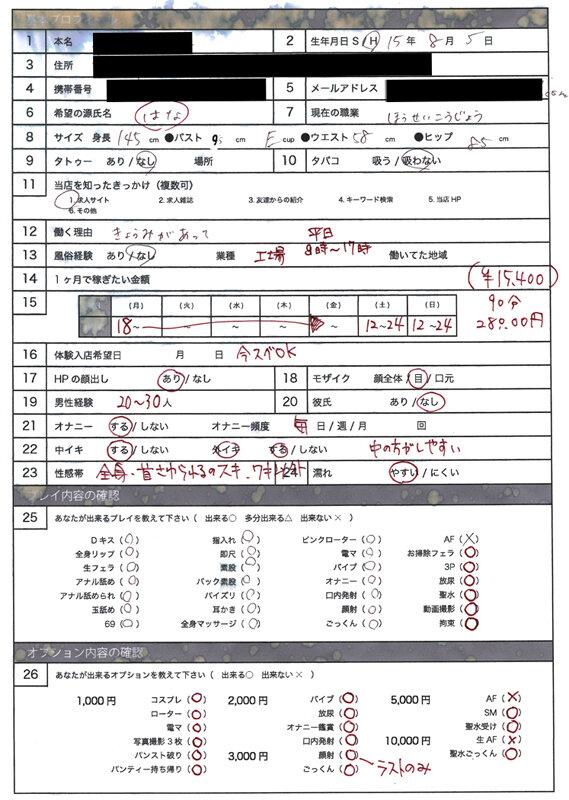 プロフィール
1 本名 2 生年月日 S/H 15年 8月 5日
3 住所
4 携帯番号 5 メールアドレス
6 希望の源氏名 はな 7 現在の職業 ほうせいこうじょう
8 サイズ 身長 145 cm ●バスト cm E cup ●ウエスト 58 cm ●ヒップ 85 cm
9 タトゥー あり/なし 場所 10 タバコ 吸う/吸わない
11 当店を知ったきっかけ（複数可）
1.求人サイト 2.求人雑誌 3.友達からの紹介 4.キーワード検索 5.当店HP
6.その他
12 働く理由 きょうみがあって 平日
13 風俗経験 あり/なし 業種 工場 8時～17時 働いてた地域
14 1ヶ月で稼ぎたい金額 (¥15,400)
15 （月） （火） （水） （木） （金） （土） （日） 90分
18～ ～ ～ ～ ～ 12～24 12～24 28000円
16 体験入店希望日 月 日 今スベOK
17 HPの顔出し あり/なし 18 モザイク 顔全体/目/口元
19 男性経験 20～30人 20 彼氏 あり/なし
21 オナニー する/しない オナニー頻度 毎 日/週/月 回
22 中イキ する/しない 外イキ する/しない 中の方がしやすい
23 性感帯 全身・首さわられるのスキ、ワキ 24 濡れ やすい/にくい
プレイ内容の確認
25 あなたが出来るプレイを教えて下さい（ 出来る○ 多分出来る△ 出来ない× ）
Dキス（○） 指入れ（○） ピンクローター（○） AF（×）
全身リップ（○） 即尺（○） 電マ（○） お掃除フェラ（○）
生フェラ（○） 素股（○） バイブ（○） 3P（○）
アナル舐め（○） バック素股（○） オナニー（○） 放尿（○）
アナル舐められ（○） パイズリ（○） 口内発射（○） 聖水（○）
玉舐め（○） 耳かき（○） 顔射（○） 動画撮影（○）
69（○） 全身マッサージ（○） ごっくん（○） 拘束（○）
オプション内容の確認
26 あなたが出来るオプションを教えて下さい（ 出来る○ 出来ない× ）
1,000円 コスプレ（○） 2,000円 バイブ（○） 5,000円 AF（×）
ローター（○） 放尿（○） SM（○）
電マ（○） オナニー鑑賞（○） 聖水受け（○）
写真撮影3枚（○） 口内発射（○） 10,000円 生AF（×）
パンスト破り（○） 3,000円 顔射（○） 聖水ごっくん（○）
パンティー持ち帰り（○） ごっくん（○） ラストのみ